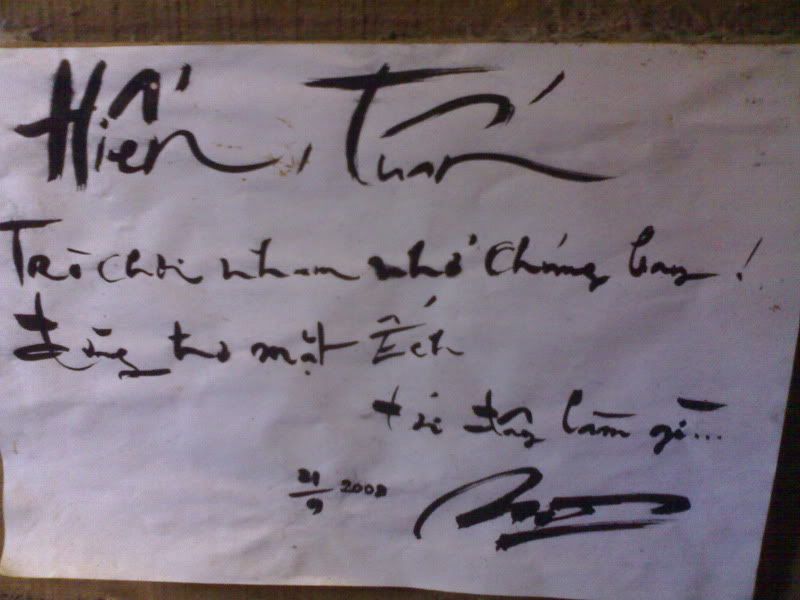 Hiền, Tuấn
Trò chơi nham nhở chúng bay!
Đừng thò mặt Ếch
tới đây làm gì...
21/9 2008